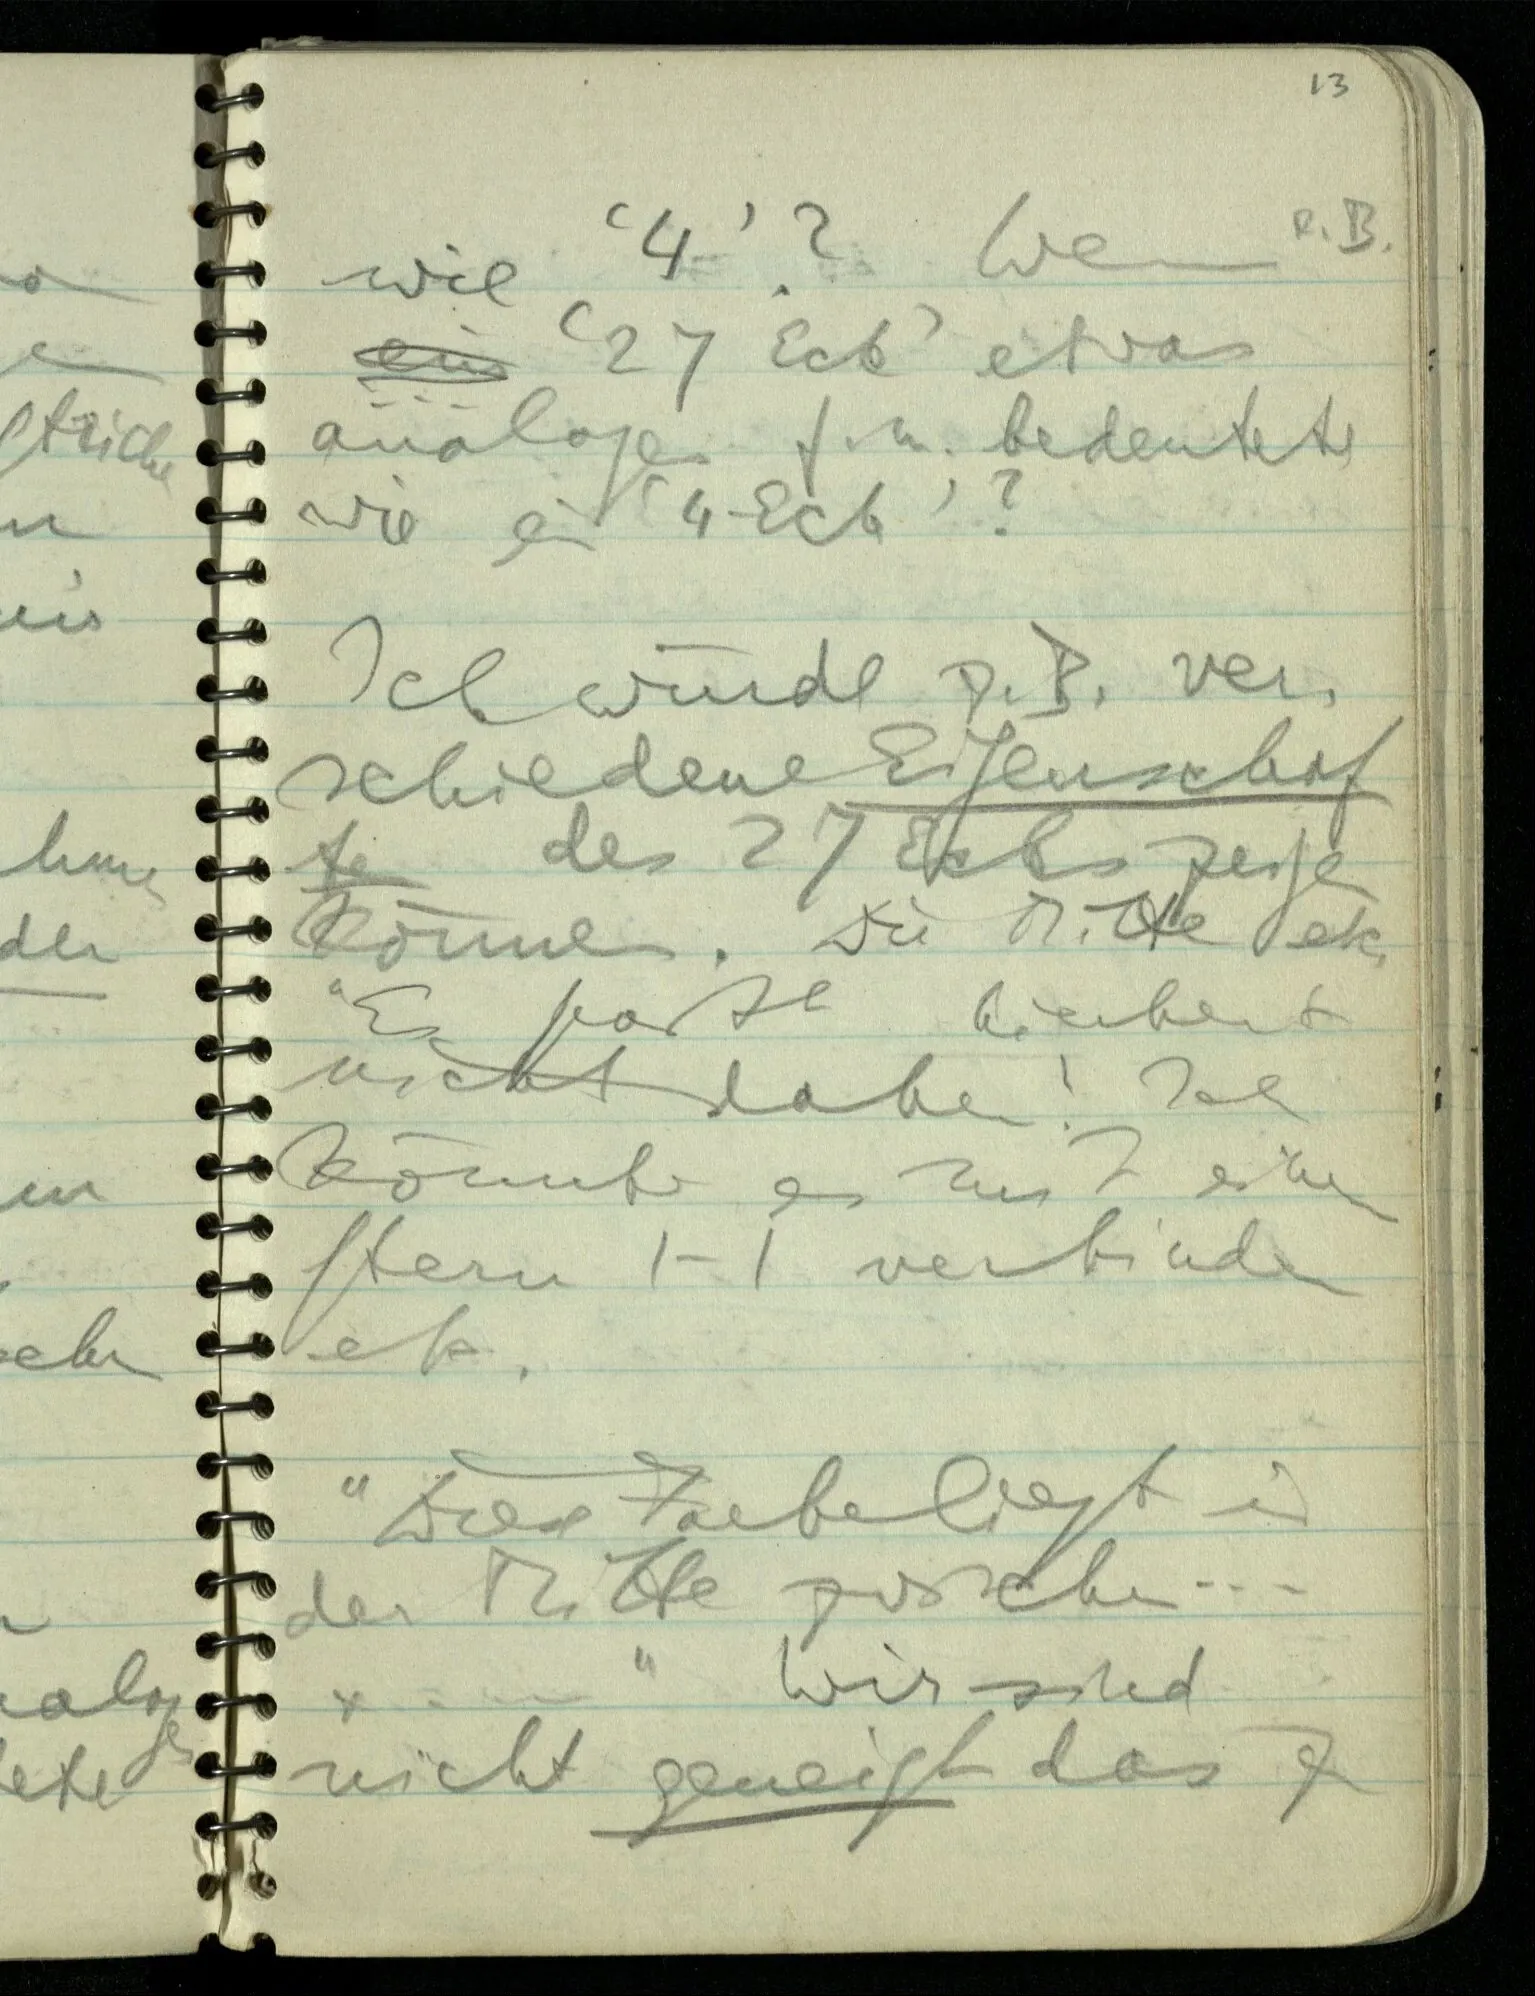 13
wie '4'? Wenn z.B.
ein '27 Eck' etwas
analoges f. u. bedeutete
wie ein '4-Eck'?
Ich würde z.B. ver-
schiedene Eigenschaf
ten des 27 Ecks zeigen
können. Die Mitte etc.
"Es paßt
nicht daher! Ich
könnte es mit einem
Stern 1-1 verbinden
etc.
"Diese Farbe liegt in
der Mitte zwischen ---
x - - - " Wir sind
nicht geneigt das zu
striche
den
analoges